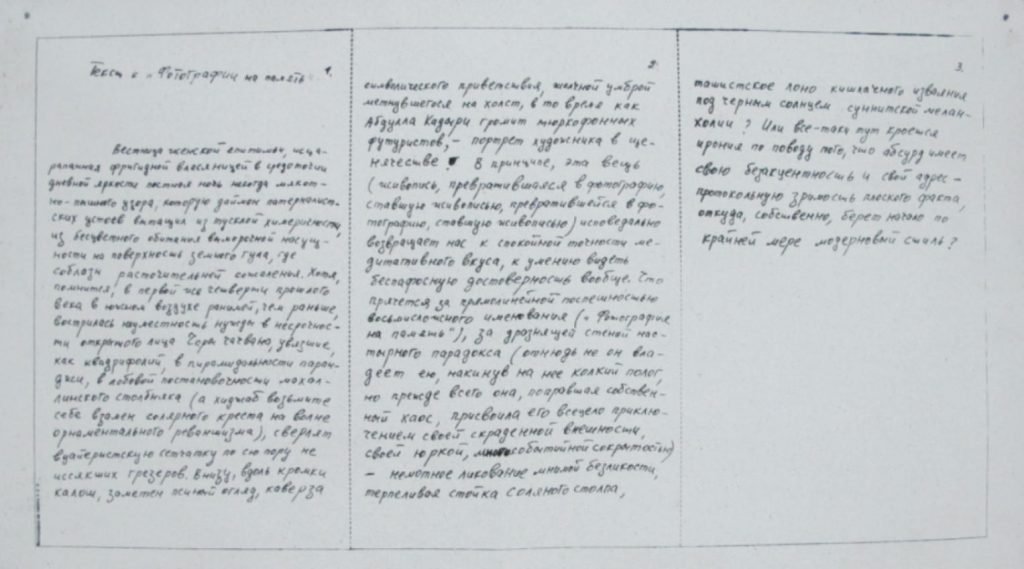 Текст к "Фотографии на память" 1.
Вестница женской епитимьи, исца-
рапанная фригидной власяницей в средоточии
дневной яркости постная ночь некогда мякот-
но-пышного узора, которую даймон патерналист-
ских устоев витащил из тусклой химеричности,
из бесцветного обитания выморочной насущ-
ности на поверхность земного гула, где
соблазн расточительней сожаленья. Хотя,
помнится, в первой же четверти прошлого
века в южном воздухе ранимей, чем раньше,
вострилась неуместность нужды в несрочнос-
ти открытого лица. Чоры чачвана, увязшие,
как квадрифолий, в пирамидальности паран-
джи, в лобовой постановочности махал-
линского столбняка (а хиджаб возьмите
себе взамен солярного креста на волне
орнаментального реваншизма), сверлят
вуайеристскую сетчатку по сю пору не
иссякших грезеров. Внизу, вдоль кромки
калош, заметен живой огляд, каверза
2.
символического приветствия, желчной умброй
метнувшегося на холст, в то время как
Абдулла Кадыри громит тюркофонных
футуристов, – портрет художника в ще-
нячестве. В принципе, эта вещь
(живопись, превратившаяся в фотографию,
ставшую живописью, превратившейся в фо-
тографию, ставшую живописью) исповедально
возвращает нас к спокойной точности ме-
дитативного вкуса, к умению видеть
беспафосную достоверность вообще. Что
прячется за прямолинейной поспешностью
восьмисложного именования ("Фотография
на память"), за дразнящей стеной нас-
тырного парадокса (отнюдь не он вла-
деет ею, накинув на нее колкий полог,
но прежде всего она, поправшая собствен-
ный хаос, присвоила его всецело приклю-
чением своей скраденной внешности,
своей юркой, событийной сокрытостью)
– немотное ликование мнимой безликости,
терпеливая стойка соляного столпа,
3.
ташистское лоно кишлачного изваяния
под черным солнцем суннитской мелан-
холии? Или все-таки тут кроется
ирония по поводу того, что абсурд имеет
свою безакцентность и свой адрес –
протокольную зримость плоского факта,
откуда, собственно, берет начало по
крайней мере модерновый стиль?